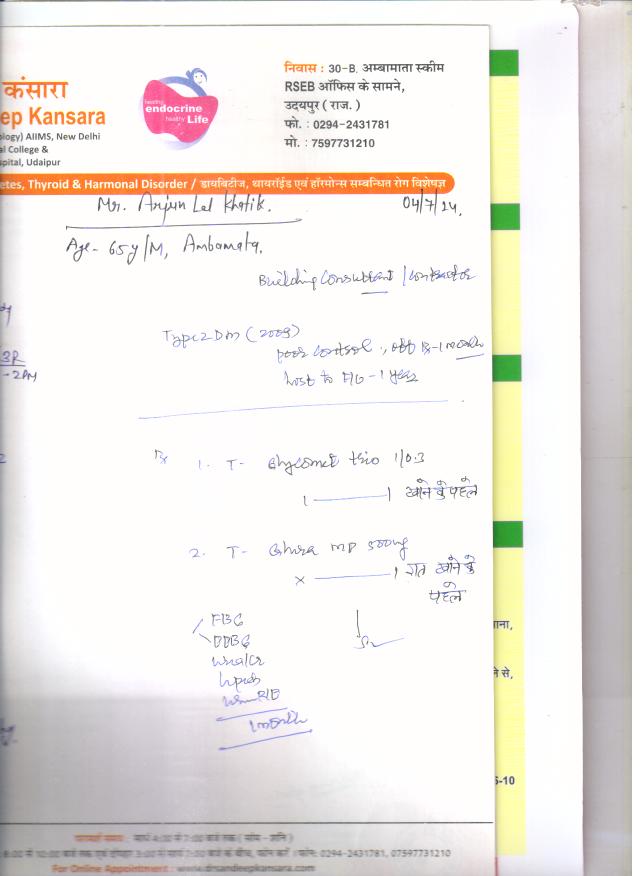 कंसारा
ep Kansara
ology) AIIMS, New Delhi
al College &
spital, Udaipur
healing
endocrine
healthy Life
निवास : 30-B, अम्बामाता स्कीम
RSEB ऑफिस के सामने,
उदयपुर ( राज. )
फो. : 0294-2431781
मो. : 7597731210
etes, Thyroid & Harmonal Disorder / डायबिटीज, थायरॉईड एवं हॉरमोन्स सम्बन्धित रोग विशेषज्ञ
Mr. Arjun Lal Khatik.
04/7/24.
Age - 65y/M, Ambamata.
Building Consultant / Contractor
Type 2 DM (2009)
poor control, off Rx - 1 month
lost to F/U - 1 year
3R
- 2PM
Rx 1. T- Glycomet trio 1/0.3
1 ——— 1 खाने के पहले
2. T- MP 500mg
x ——— 1 रात खाने के
पहले
FBG
PPBG
Lipids
1 month
ाना,
ने से,
6-10
परामर्श समय : सायं 4:00 से 7:00 बजे तक ( सोम - शनि )
8:00 से 10:00 बजे तक एवं दोपहर 3:00 से सायं 7:30 बजे के बीच, फोन करें । फोन: 0294-2431781, 07597731210
For Online Appointment : www.drsandeepkansara.com